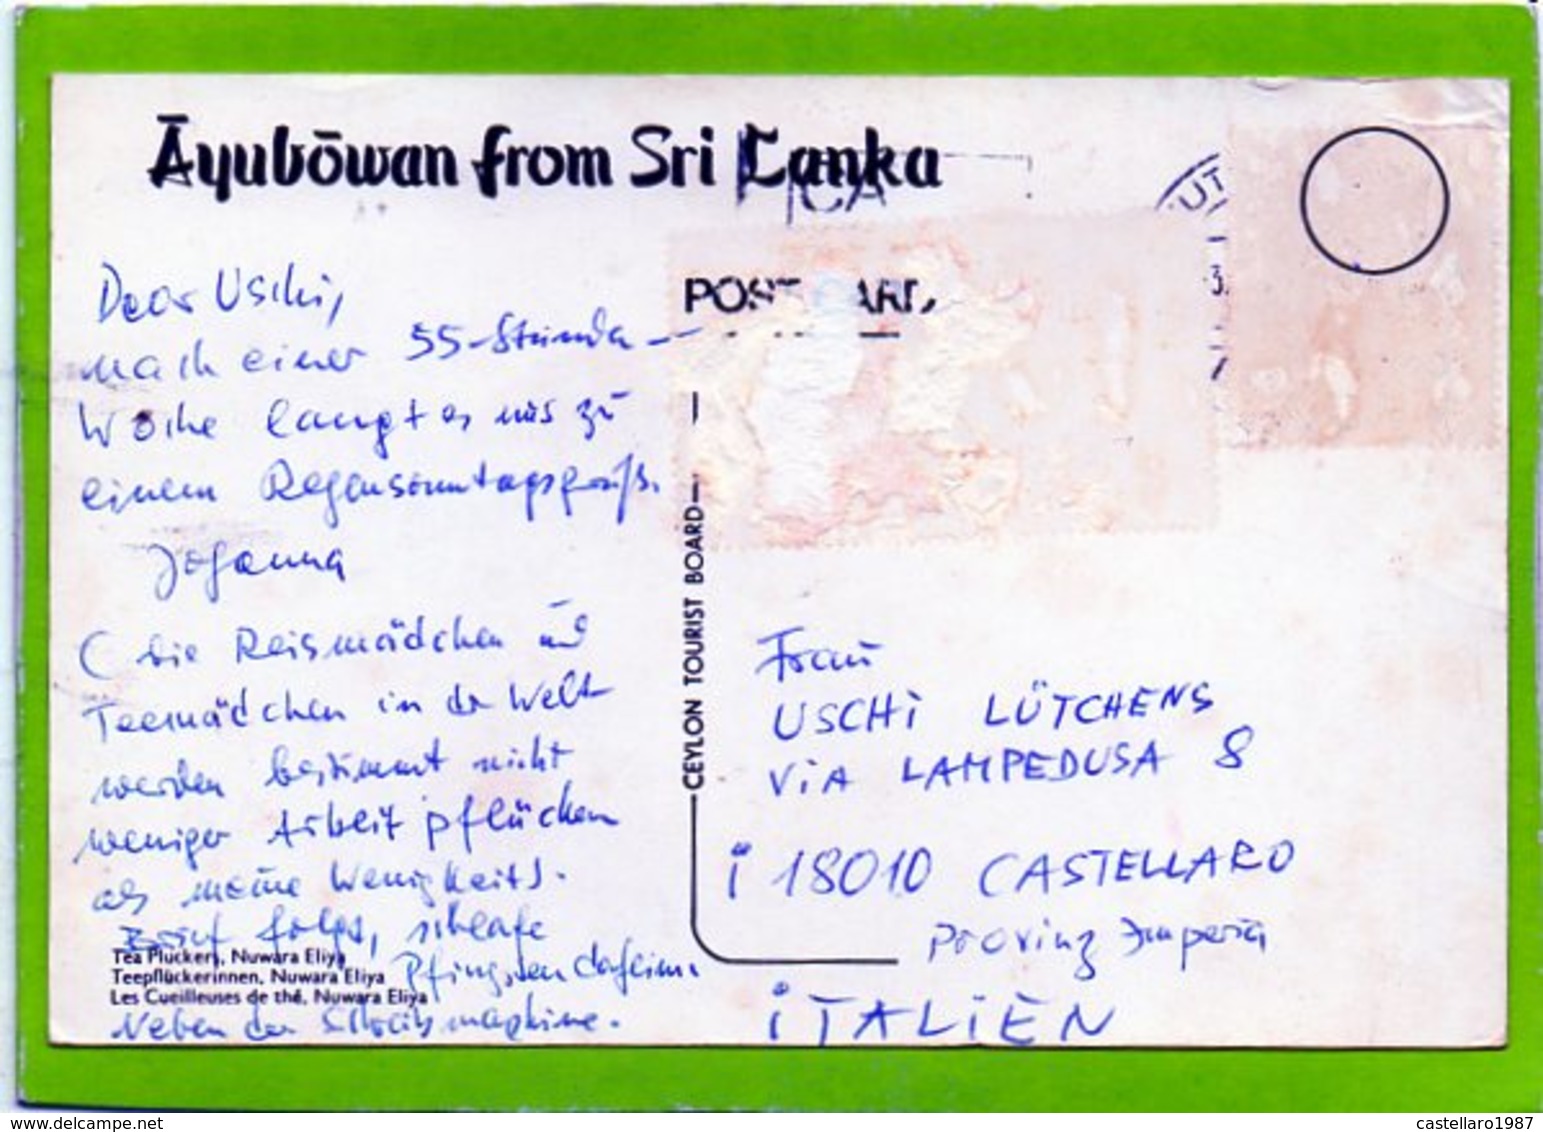 Āyubōwan from Sri Lanka
ICA
UT
3.
POST CARD
Dear Uschi,
nach einer 55-Stunden-
Woche langt es nur zu
einem Regensonntagsgruß.
Johanna
(die Reismädchen und
Teemädchen in der Welt
werden bestimmt nicht
weniger Arbeit pflücken
als meine Wenigkeit).
Brief folgt, schlafe
Pfingsten daheim
neben der Schreibmaschine.
Tea Pluckers, Nuwara Eliya
Teepflückerinnen, Nuwara Eliya
Les Cueilleuses de thé, Nuwara Eliya
CEYLON TOURIST BOARD
Frau
USCHI LÜTCHENS
VIA LAMPEDUSA 8
I 18010 CASTELLARO
Provinz Imperia
ITALIEN
delcampe.net
castellaro1987